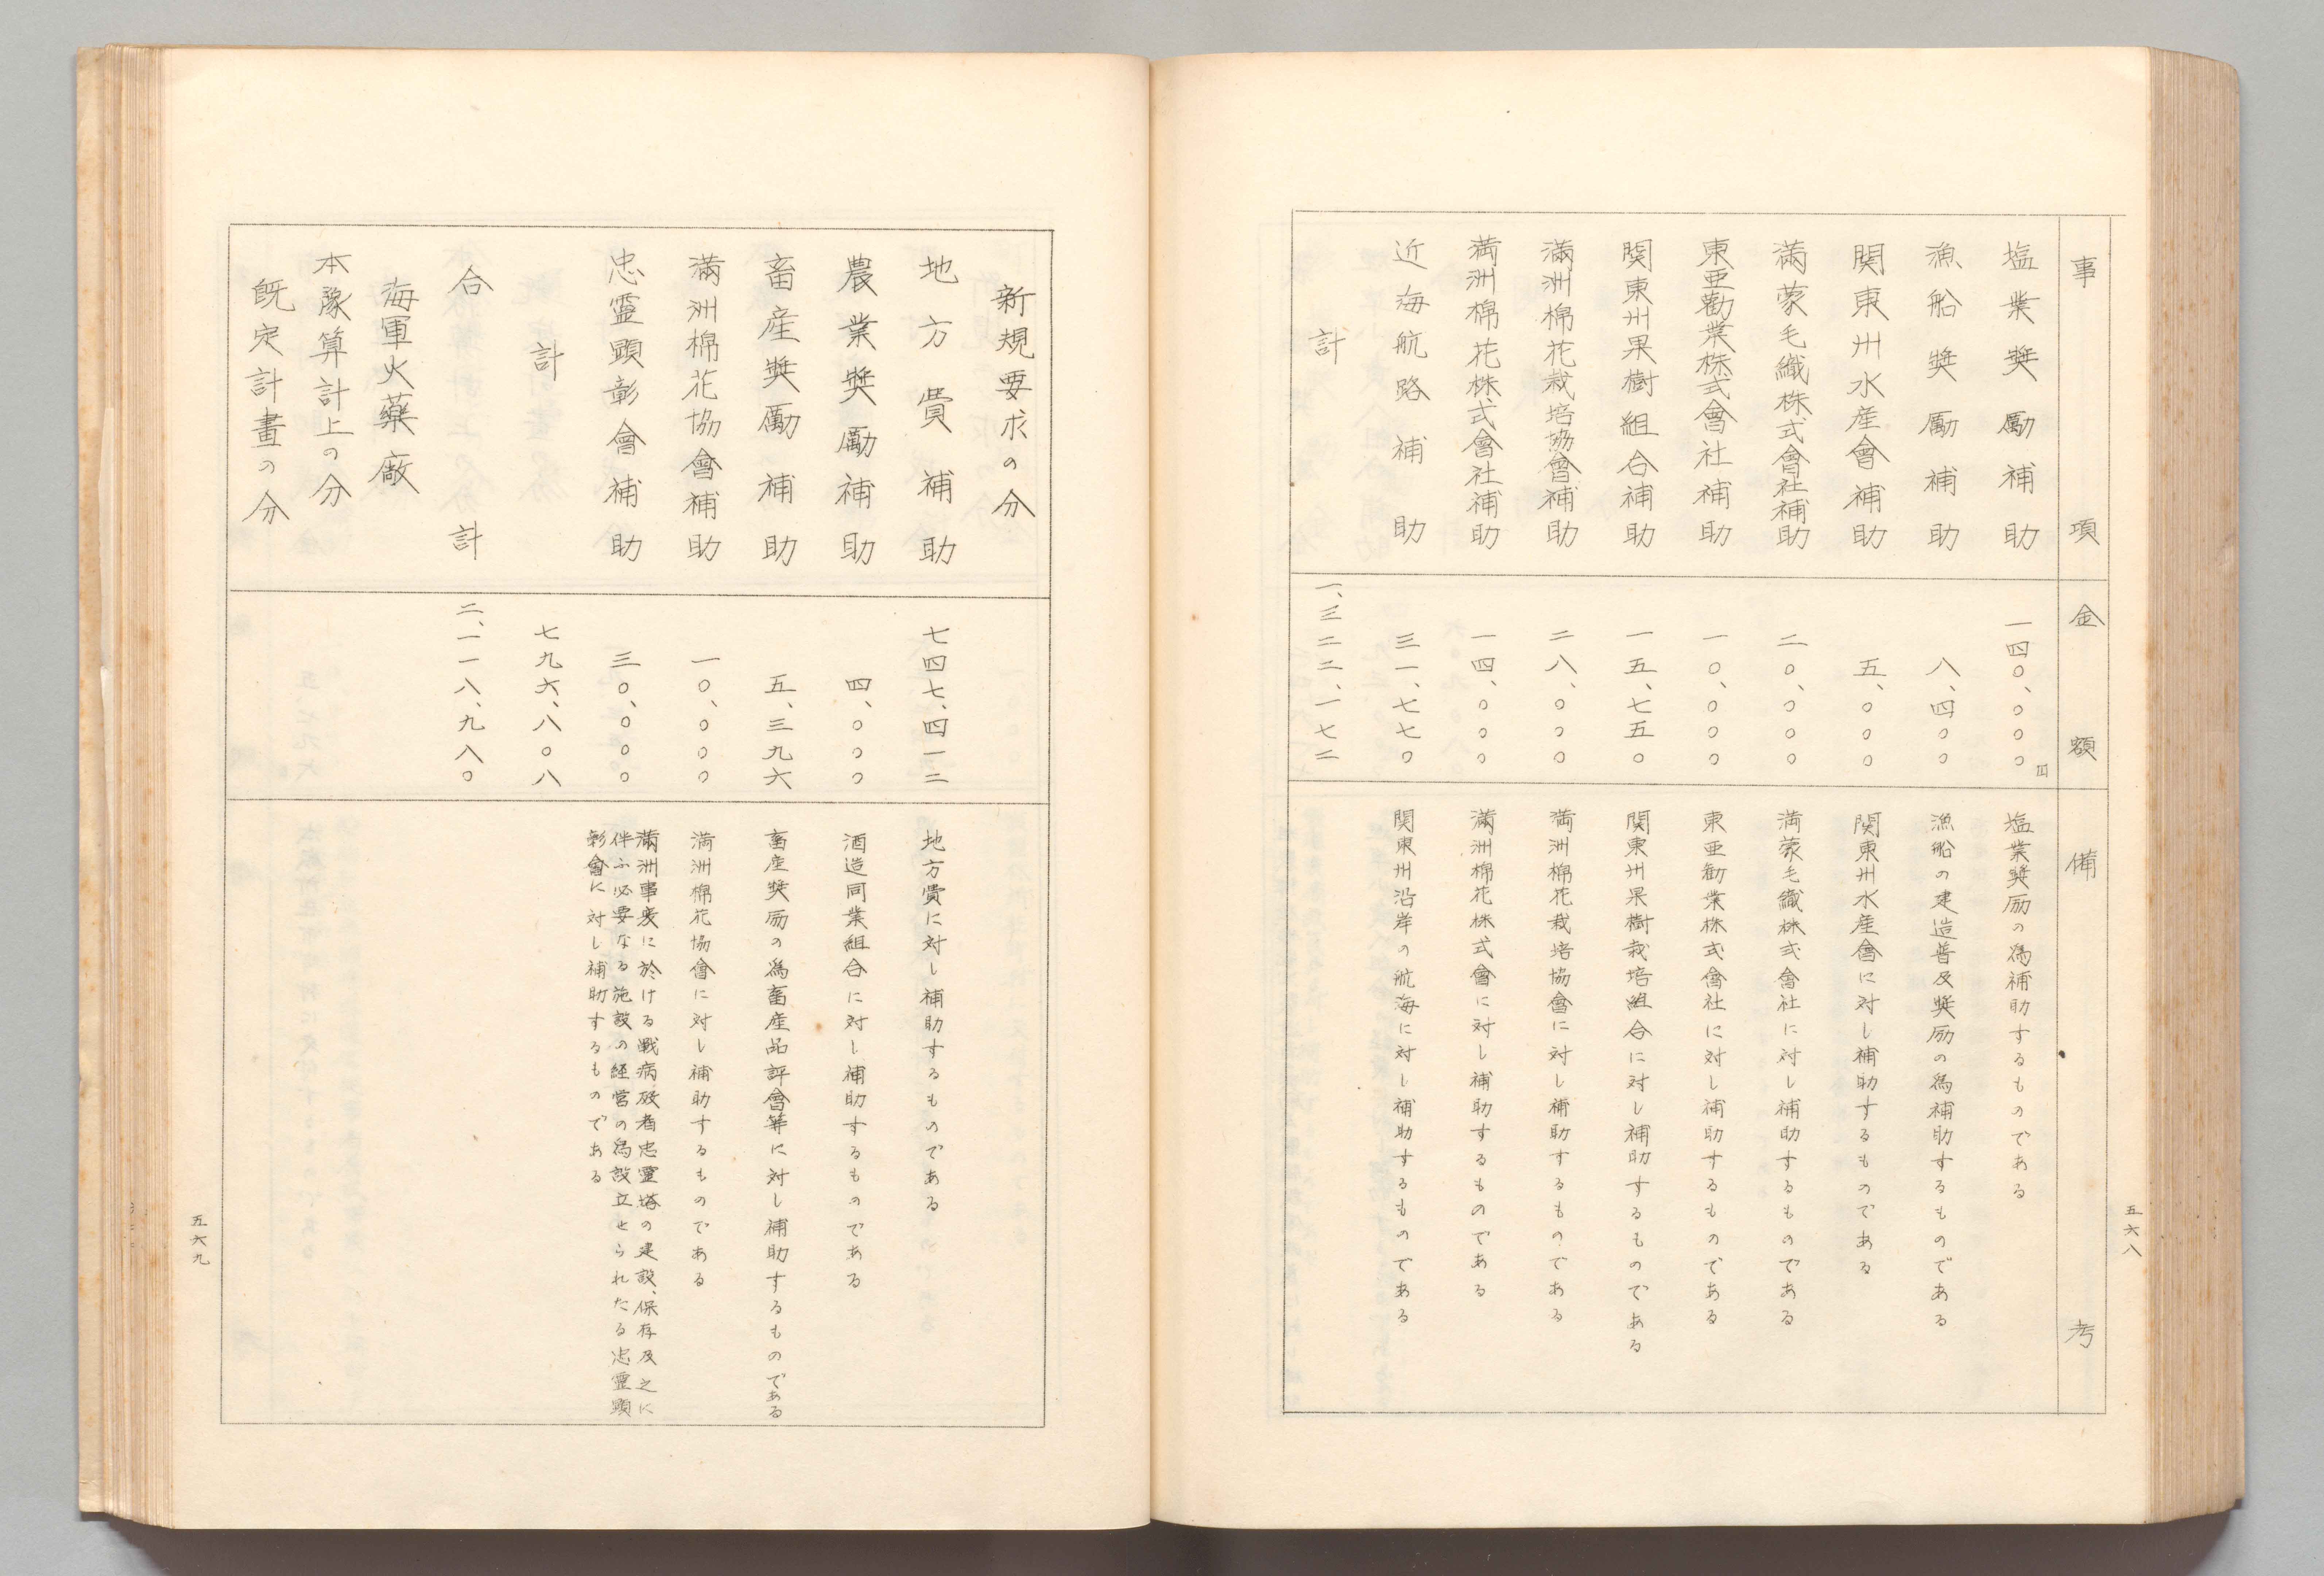 事項 金額 備考
塩業奬勵補助 一四〇、〇〇〇 塩業奬励の為補助するものである
漁船奬勵補助 八、四〇〇 漁船の建造普及奬励の為補助するものである
関東州水産會補助 五、〇〇〇 関東州水産會に対し補助するものである
滿蒙毛織株式會社補助 二〇、〇〇〇 満蒙毛織株式會社に対し補助するものである
東亜勸業株式會社補助 一〇、〇〇〇 東亜勧業株式會社に対し補助するものである
関東州果樹組合補助 一五、七五〇 関東州果樹栽培組合に対し補助するものである
滿洲棉花栽培協會補助 二八、〇〇〇 満洲棉花栽培協會に対し補助するものである
満洲棉花株式會社補助 一四、〇〇〇 滿洲棉花株式會に対し補助するものである
近海航路補助 三一、七七〇 関東州沿岸の航海に対し補助するものである
計 一、三二二、一七二
五六八
新規要求の分
地方費補助 七四七、四一二 地方費に対し補助するものである
農業奬勵補助 四、〇〇〇 酒造同業組合に対し補助するものである
畜産奬勵補助 五、三九六 畜産奬励の為畜産品評會等に対し補助するものである
滿洲棉花協會補助 一〇、〇〇〇 満洲棉花協會に対し補助するものである
忠靈顕彰會補助 三〇、〇〇〇 滿洲事変に於ける戰病歿者忠靈塔の建設、保存及之に
伴ふ必要なる施設の経営の為設立せられたる忠靈顕
彰會に対し補助するものである
計 七九六、八〇八
合計 二、一一八、九八〇
海軍火藥廠
本豫算計上の分
既定計畫の分
五六九